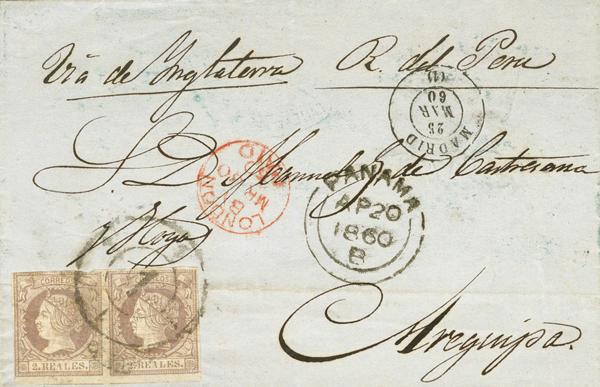 Via de Inglaterra R. del Peru
MADRID
25
MAR
60
(1)
LONDON
PAID
MR
60
S. D. Manuel J. de Castresana
y Hoyo
PANAMA
AP 20
1860
B
CORREOS
2. REALES.
2. REALES.
Arequipa.